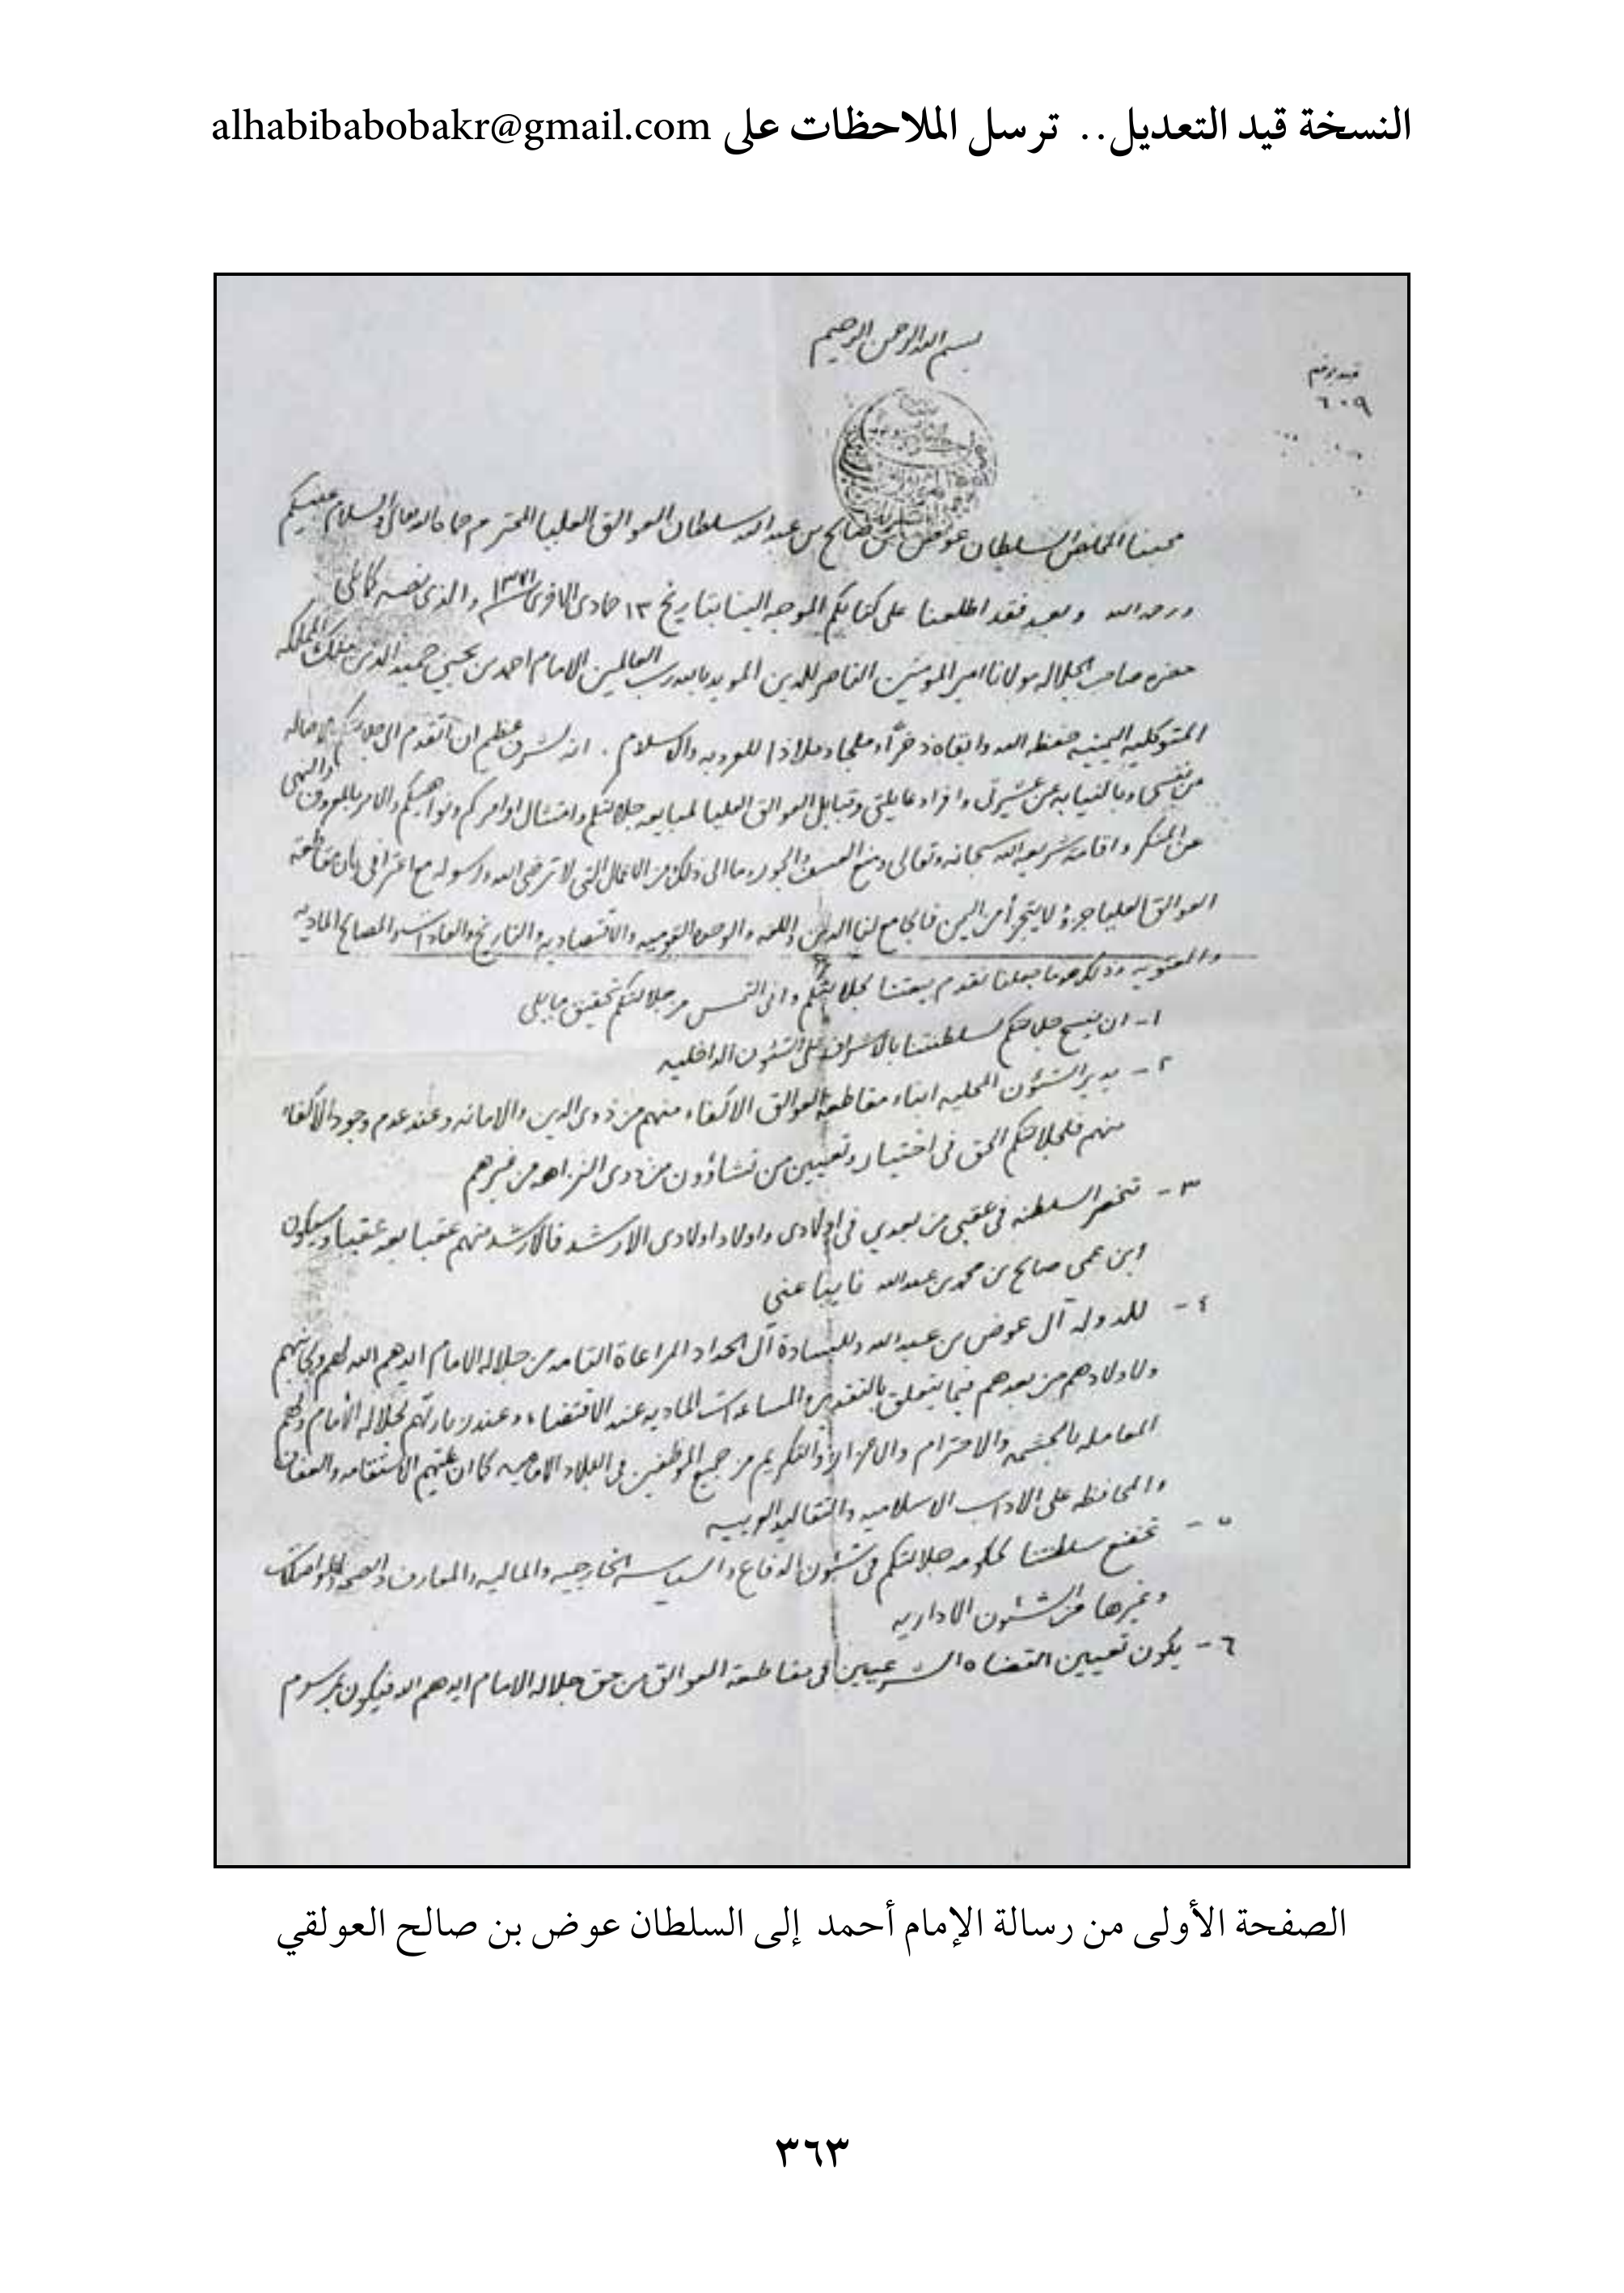 النسخة قيد التعديل.. ترسل الملاحظات على alhabibabobakr@gmail.com
بسم الله الرحمن الرحيم
قيد برقم
٦٠٩
محبنا المخلص السلطان عوض بن صالح بن عبدالله سلطان العوالق العليا المحترم حماه الله تعالى والسلام عليكم
ورحمة الله وبعد فقد اطلعنا على كتابكم الموجه الينا بتاريخ ١٣ جمادى الاخرى ١٣٧٦ والذي نصه كما يلي
حضرة صاحب الجلاله مولانا امير المومنين الناصر للدين المويد بالله رب العالمين الامام احمد بن يحيى حميد الدين ملك المملكه
المتوكليه اليمنيه حفظه الله وابقاه ذخرًا وملجأ وملاذا للعروبه والاسلام . انه لشرف عظيم ان اتقدم الى جلالتكم بالاصاله
من نفسي وبالنيابه عن عشيرتي وافراد عايلتي وقبايل العوالق العليا لمبايعه جلالتكم وامتثال اوامركم ونواهيكم والامر بالمعروف والنهي
عن المنكر واقامة شريعة الله سبحانه وتعالى ومنع العسف والجور وما الى ذلك من الاعمال التي لا ترضي الله ورسوله مع اعترافي بان مقاطعة
العوالق العليا جزؤ لا يتجزأ من اليمن فالجامع لنا الدين واللغه والوحده القوميه والاقتصاديه والتاريخ والعادات والمصالح الماديه
والمعنويه وذلك هو ما جعلنا نقدم بيعتنا لجلالتكم واني التمس من جلالتكم تحقيق ما يلي
١- ان تسمح جلالتكم لسلطنتنا بالاشراف على الشئون الداخليه
٢- يدير الشئون المحليه ابناء مقاطعة العوالق الاكفاء منهم من ذوى الدين والامانه وعند عدم وجود الاكفاء
منهم فلجلالتكم الحق في اختيار وتعيين من تشاؤون من ذوى النزاهه من غيرهم
٣- تنحصر السلطنه في عقبي من بعدي في اولادى واولاد اولادى الارشد فالارشد منهم عقبا بعد عقب وسيكون
ابن عمي صالح بن محمد بن عبدالله نايبا عني
٤- للدوله آل عوض بن عبدالله وللساده آل الحداد المراعاة التامه من جلاله الامام ايدهم الله لهم ولجانبهم
ولاولادهم من بعدهم فيما يتعلق بالتقدير والمساعدات الماديه عند الاقتضاء وعند زيارتهم لجلالة الأمام ولهم
المعامله بالحشمه والاحترام والاعزاز والتكريم من جميع الموظفين في البلاد الاماميه كما ان عليهم الاستقامه والعفاف
والمحافظه على الاداب الاسلاميه والتقاليد العربيه
٥- تخضع سلطنتنا لحكومه جلالتكم في شئون الدفاع والسياسه الخارجيه والماليه والمعارف والصحه والمواصلات
وغيرها من الشئون الاداريه
٦- يكون تعيين القضاه الشرعيين في مقاطعة العوالق من حق جلاله الامام ايدهم الله فيكون بمرسوم
الصفحة الأولى من رسالة الإمام أحمد إلى السلطان عوض بن صالح العولقي
٣٦٣